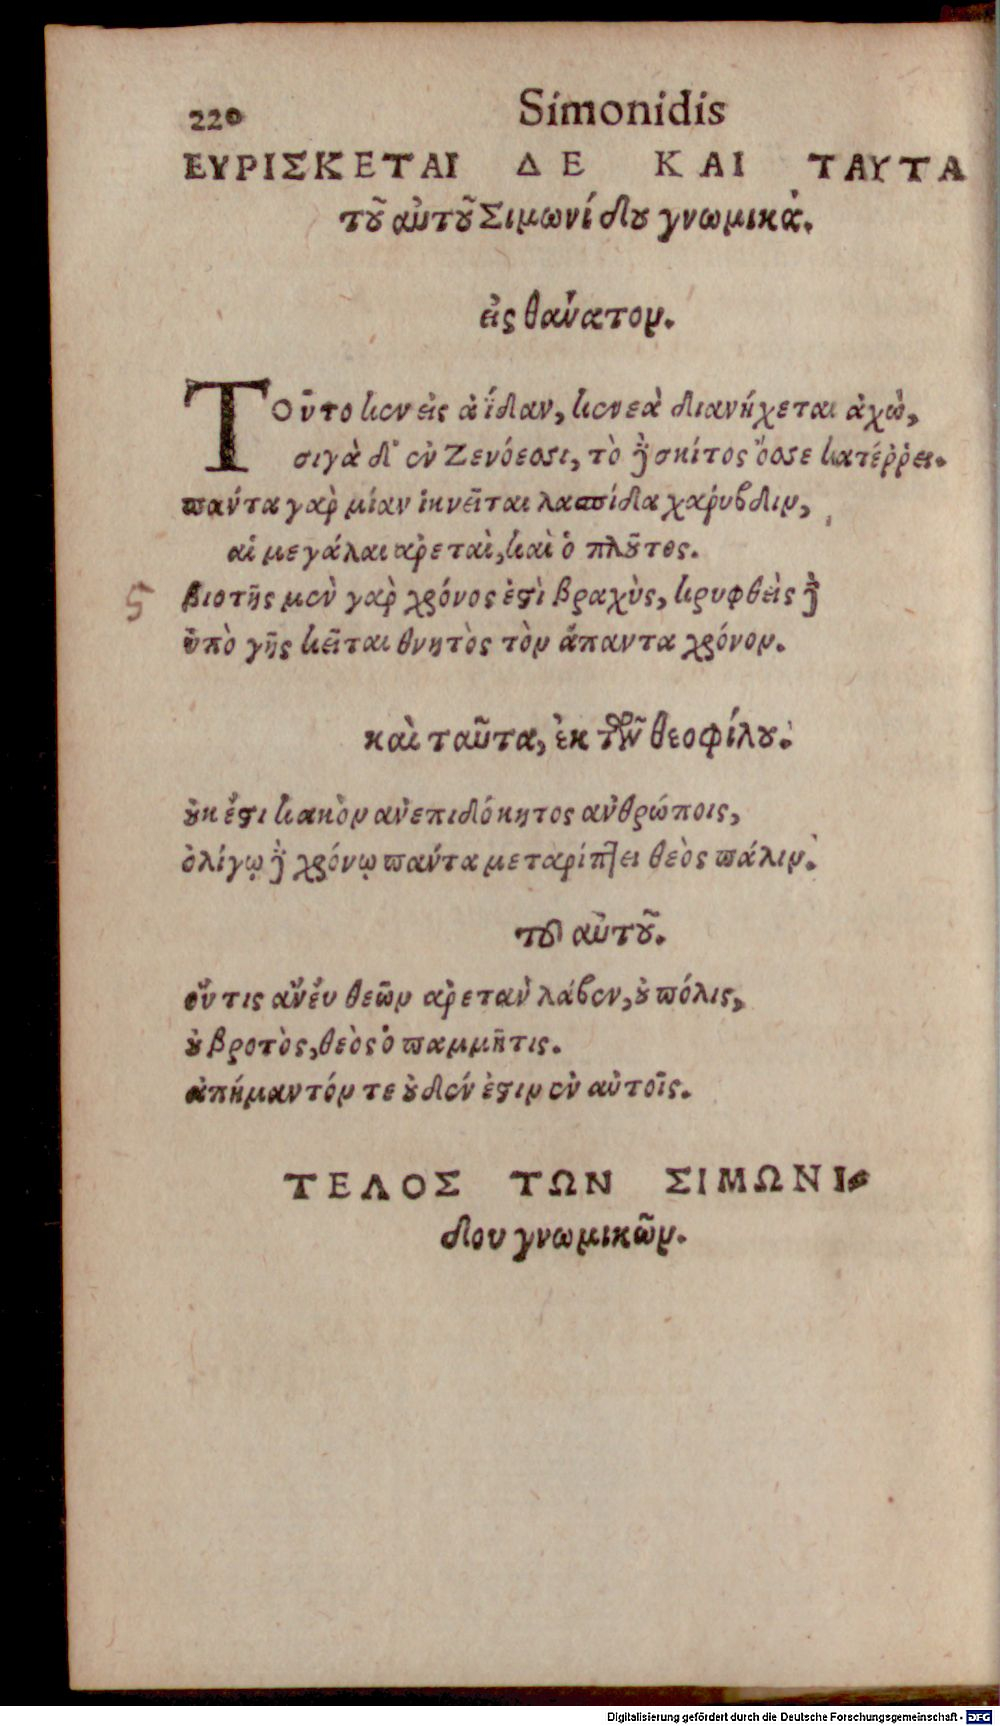 220 Simonidis
ΕΥΡΙΣΚΕΤΑΙ ΔΕ ΚΑΙ ΤΑΥΤΑ
τοῦ αὐτοῦ Σιμωνίδου γνωμικά.
εἰς θάνατον.
Τοῦτο κεν εἰς ἀΐδαν, κενεὰ διανήχεται ἀχὼ,
σιγὰ δ' ἐν Ζενόεσσι, τὸ δὲ σκίτος ὄσσε κατέρρει.
πάντα γὰρ μίαν ἱκνεῖται λασπίδα χάρυβδιν,
αἱ μεγάλαι ἀρεταὶ, καὶ ὁ πλοῦτος.
5 βιοτῆς μὲν γὰρ χρόνος ἐστὶ βραχὺς, κρυφθεὶς δὲ
ὑπὸ γῆς κεῖται θνητὸς τὸν ἅπαντα χρόνον.
καὶ ταῦτα, ἐκ τῶν θεοφίλου.
οὐκ ἔστι κακὸν ἀνεπιδόκητος ἀνθρώποις,
ὀλίγῳ δὲ χρόνῳ πάντα μεταρίπτει θεὸς πάλιν.
τοῦ αὐτοῦ.
οὔτις ἄνευ θεῶν ἀρετὰν λάβεν, οὐ πόλις,
οὐ βροτὸς, θεὸς ὁ παμμῆτις.
ἀπήμαντόν τε οὐδέν ἐστιν ἐν αὐτοῖς.
ΤΕΛΟΣ ΤΩΝ ΣΙΜΩΝΙ-
δου γνωμικῶν.
Digitalisierung gefördert durch die Deutsche Forschungsgemeinschaft - DFG